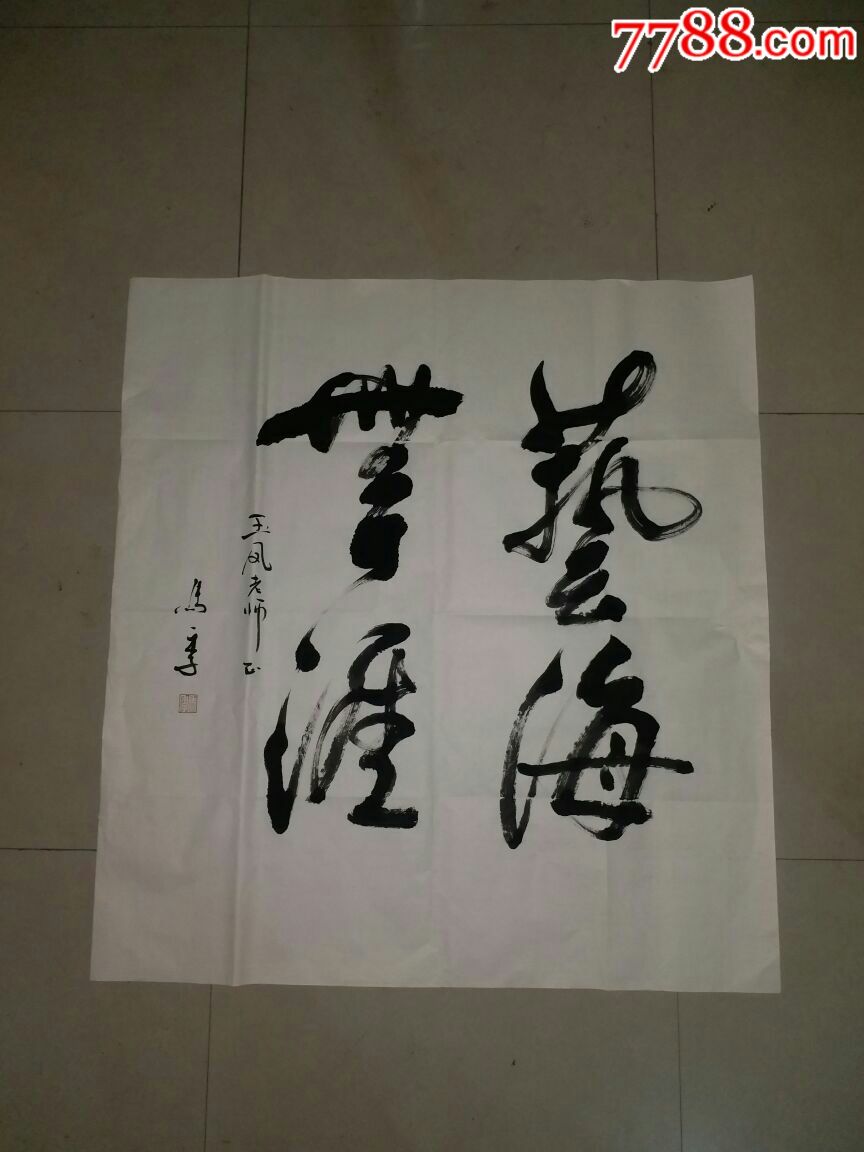 7788.com
藝海
無涯
玉凤老师正
馮季